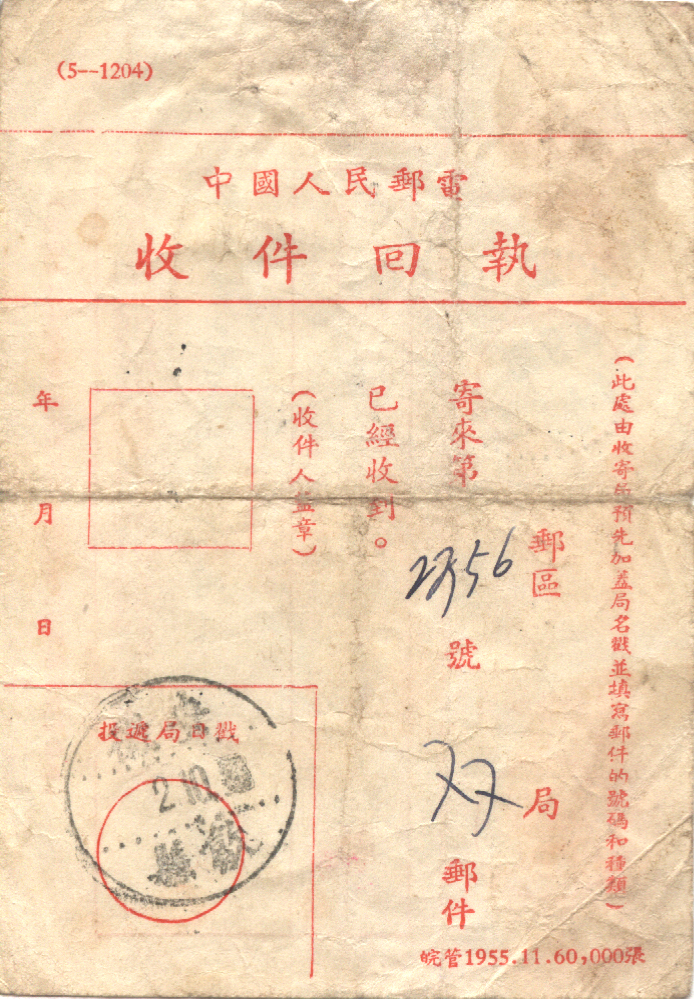 (5--1204)
中國人民郵電
收件回執
(此處由收寄局預先加蓋局名戳並填寫郵件的號碼和種類)
郵區
局
寄來第
號
双
郵件
已經收到。
(收件人蓋章)
年 月 日
投遞局日戳
2.10
皖管1955.11.60,000張